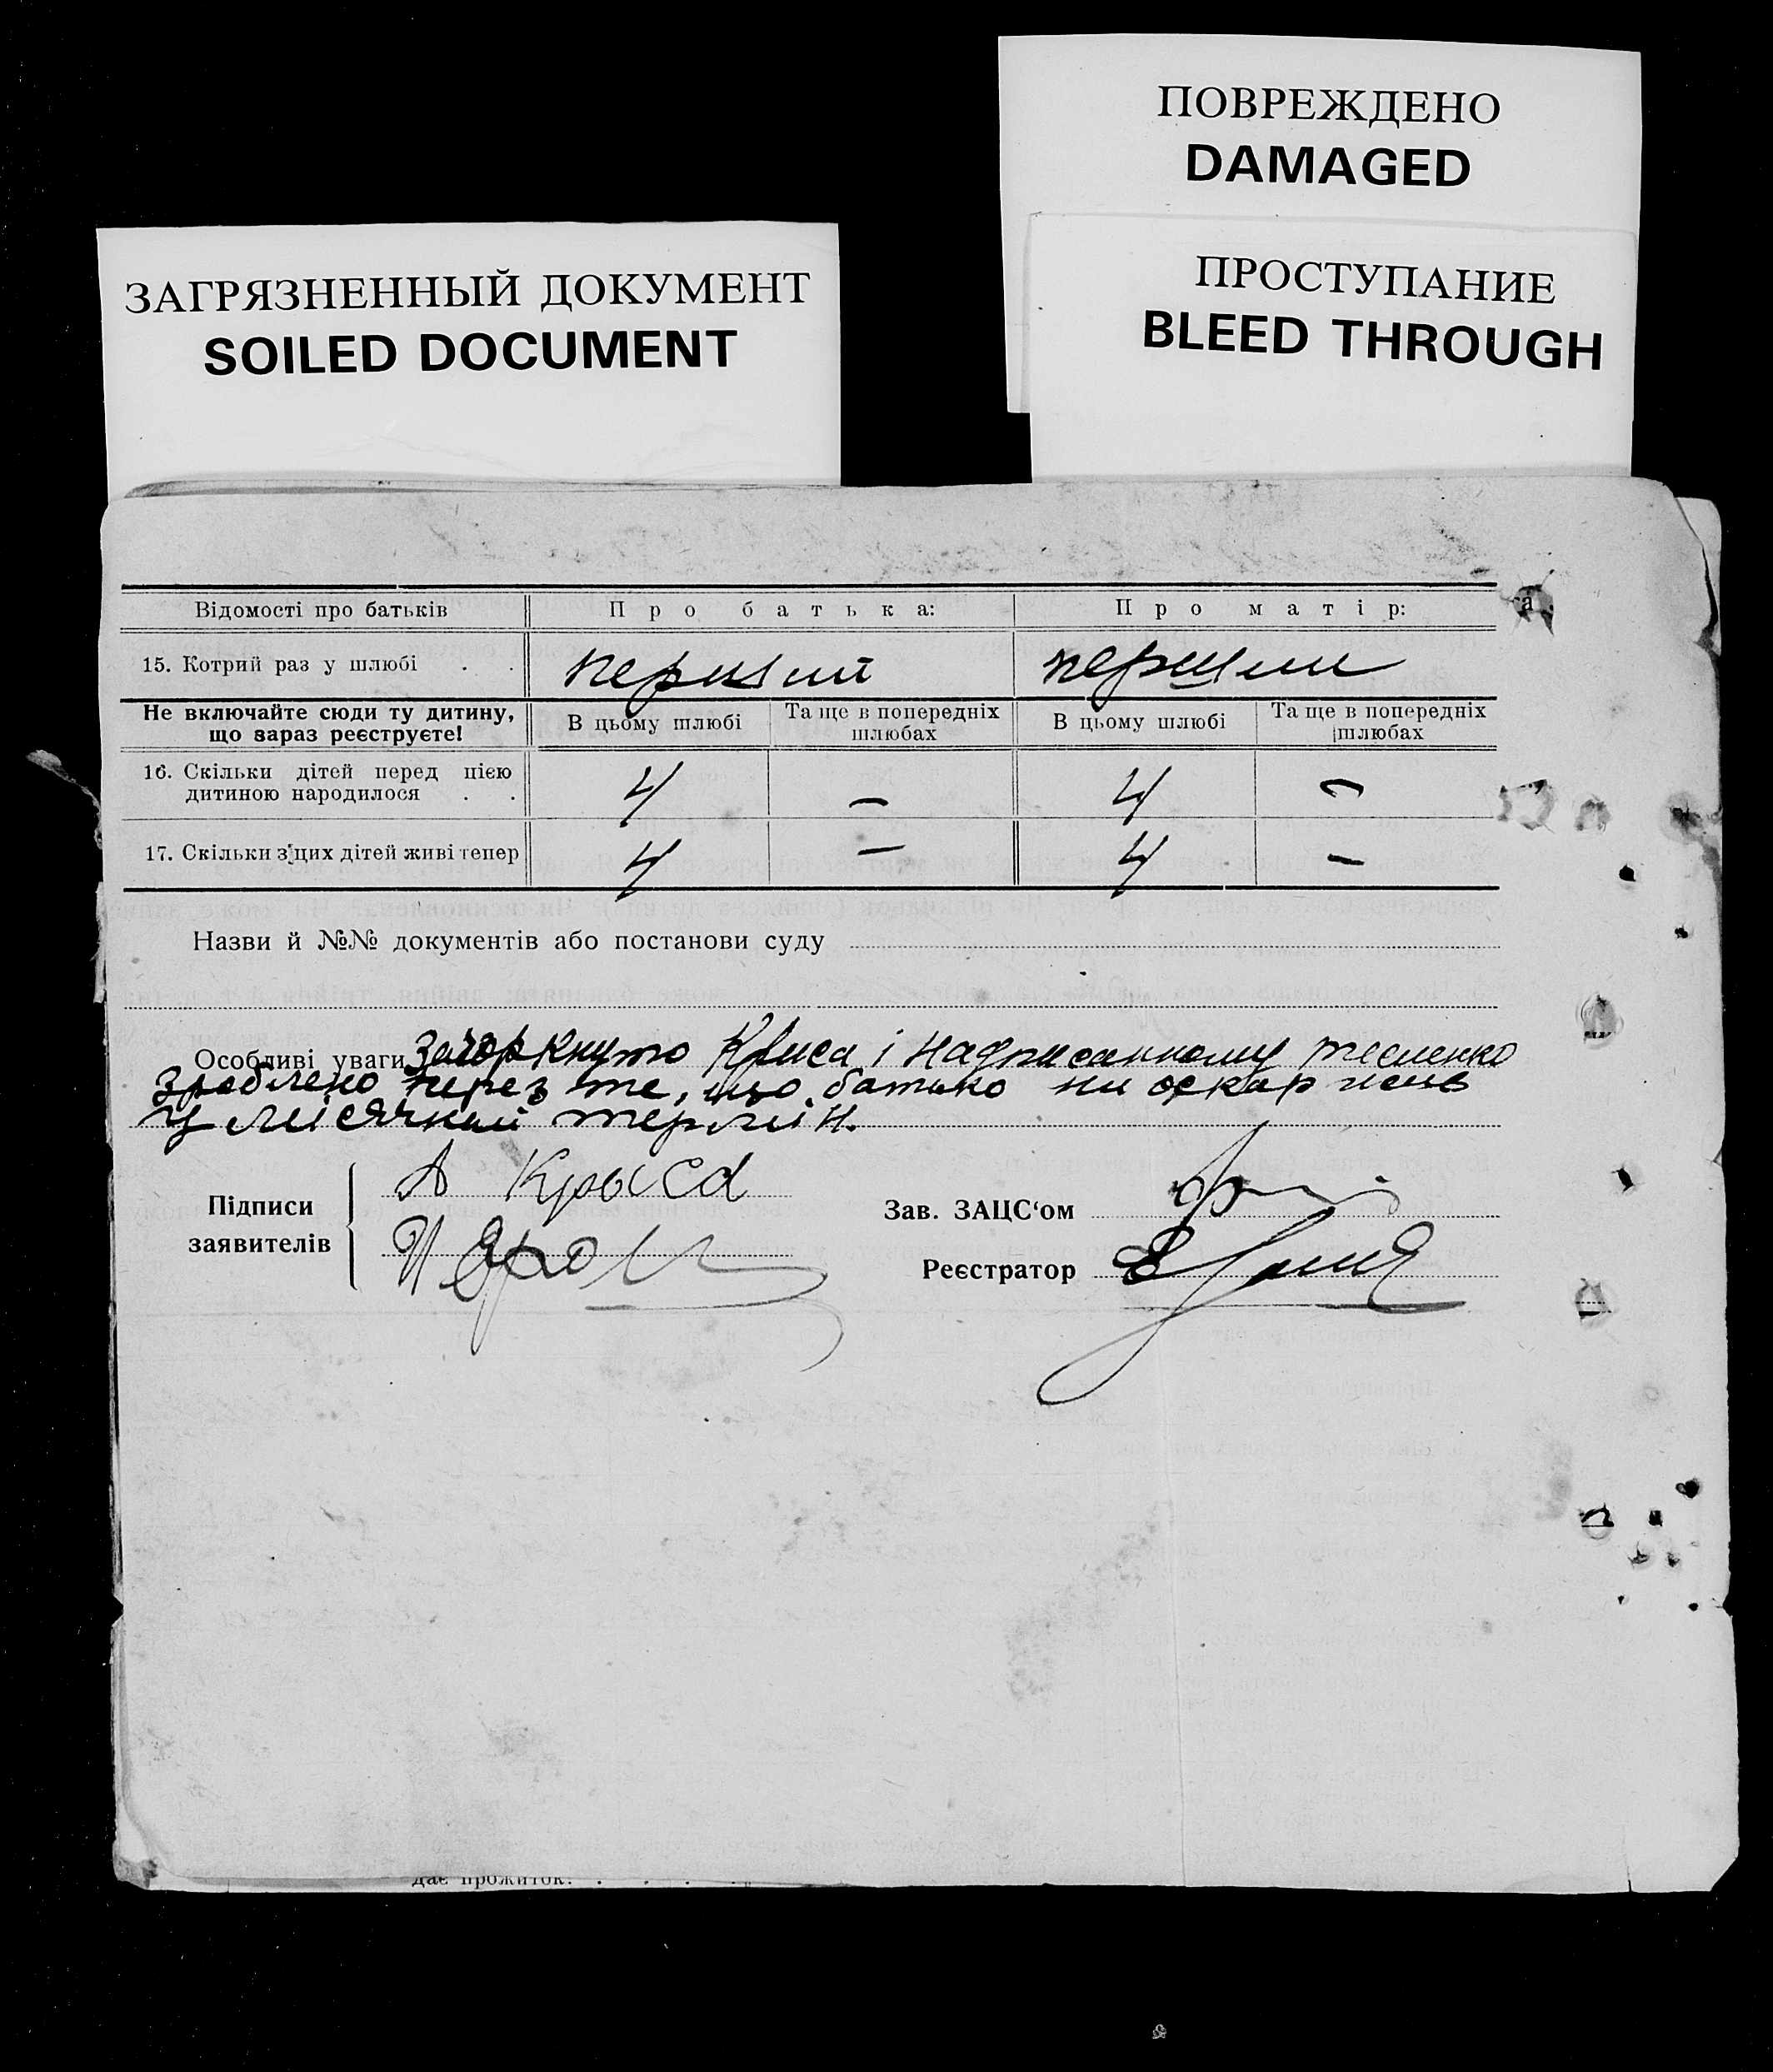 ПОВРЕЖДЕНО
DAMAGED
ЗАГРЯЗНЕННЫЙ ДОКУМЕНТ
SOILED DOCUMENT
ПРОСТУПАНИЕ
BLEED THROUGH
Відомості про батьків Про батька: Про матір:
15. Котрий раз у шлюбі . . перший перший
Не включайте сюди ту дитину, що зараз реєструєте! В цьому шлюбі Та ще в попередніх шлюбах В цьому шлюбі Та ще в попередніх шлюбах
16. Скільки дітей перед цією
дитиною народилося . . 4 – 4 –
17. Скільки з цих дітей живі тепер 4 – 4 –
Назви й №№ документів або постанови суду
Особливі уваги Зачоркнуто Криса і надписанному тесленко
зроблено через те, що батько ни оскаржив
у місячний термін.
Підписи
заявителів
А Крыса
Зав. ЗАЦС‘ом
Реєстратор
дає прожиток: . . .